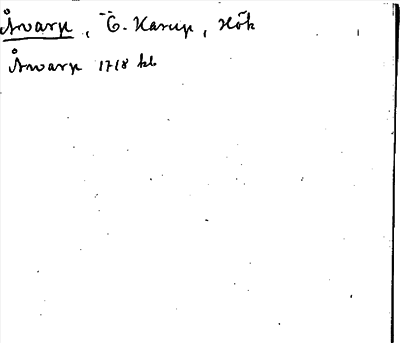 Årvarp, Ö. Karup, Hök
Årvarp 1718 kb